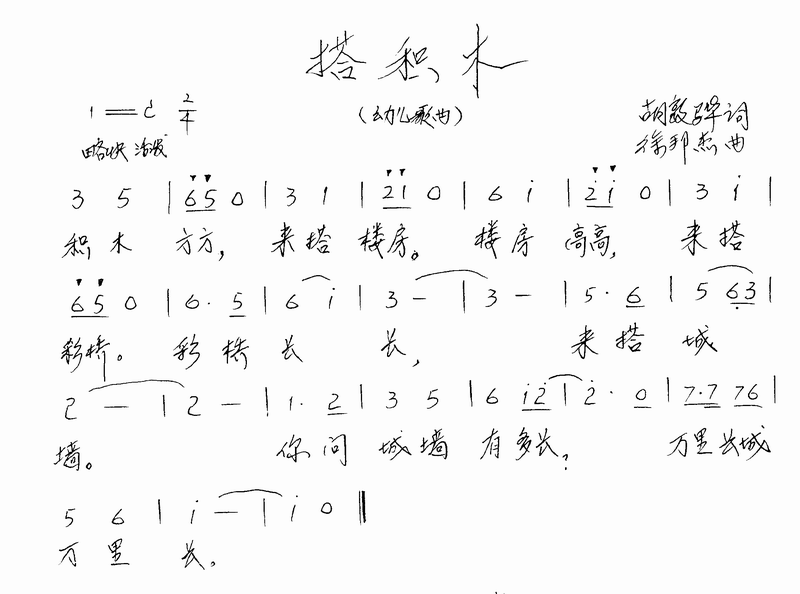 搭积木
1=C 2/4
(幼儿歌曲)
胡敦骅词
略快 活泼
徐邦杰曲
3 5 | 65 0 | 3 1 | 21 0 | 6 i | 2i 0 | 3 i |
积木 方方, 来搭 楼房。 楼房 高高, 来搭
65 0 | 6· 5 | 6 i | 3 — | 3 — | 5· 6 | 5 63 |
彩桥。 彩桥 长 长, 来搭 城
2 — | 2 — | 1· 2 | 3 5 | 6 i2 | 2· 0 | 7·7 76 |
墙。 你问 城墙 有多长? 万里长城
5 6 | i — | i 0 ‖
万里 长。